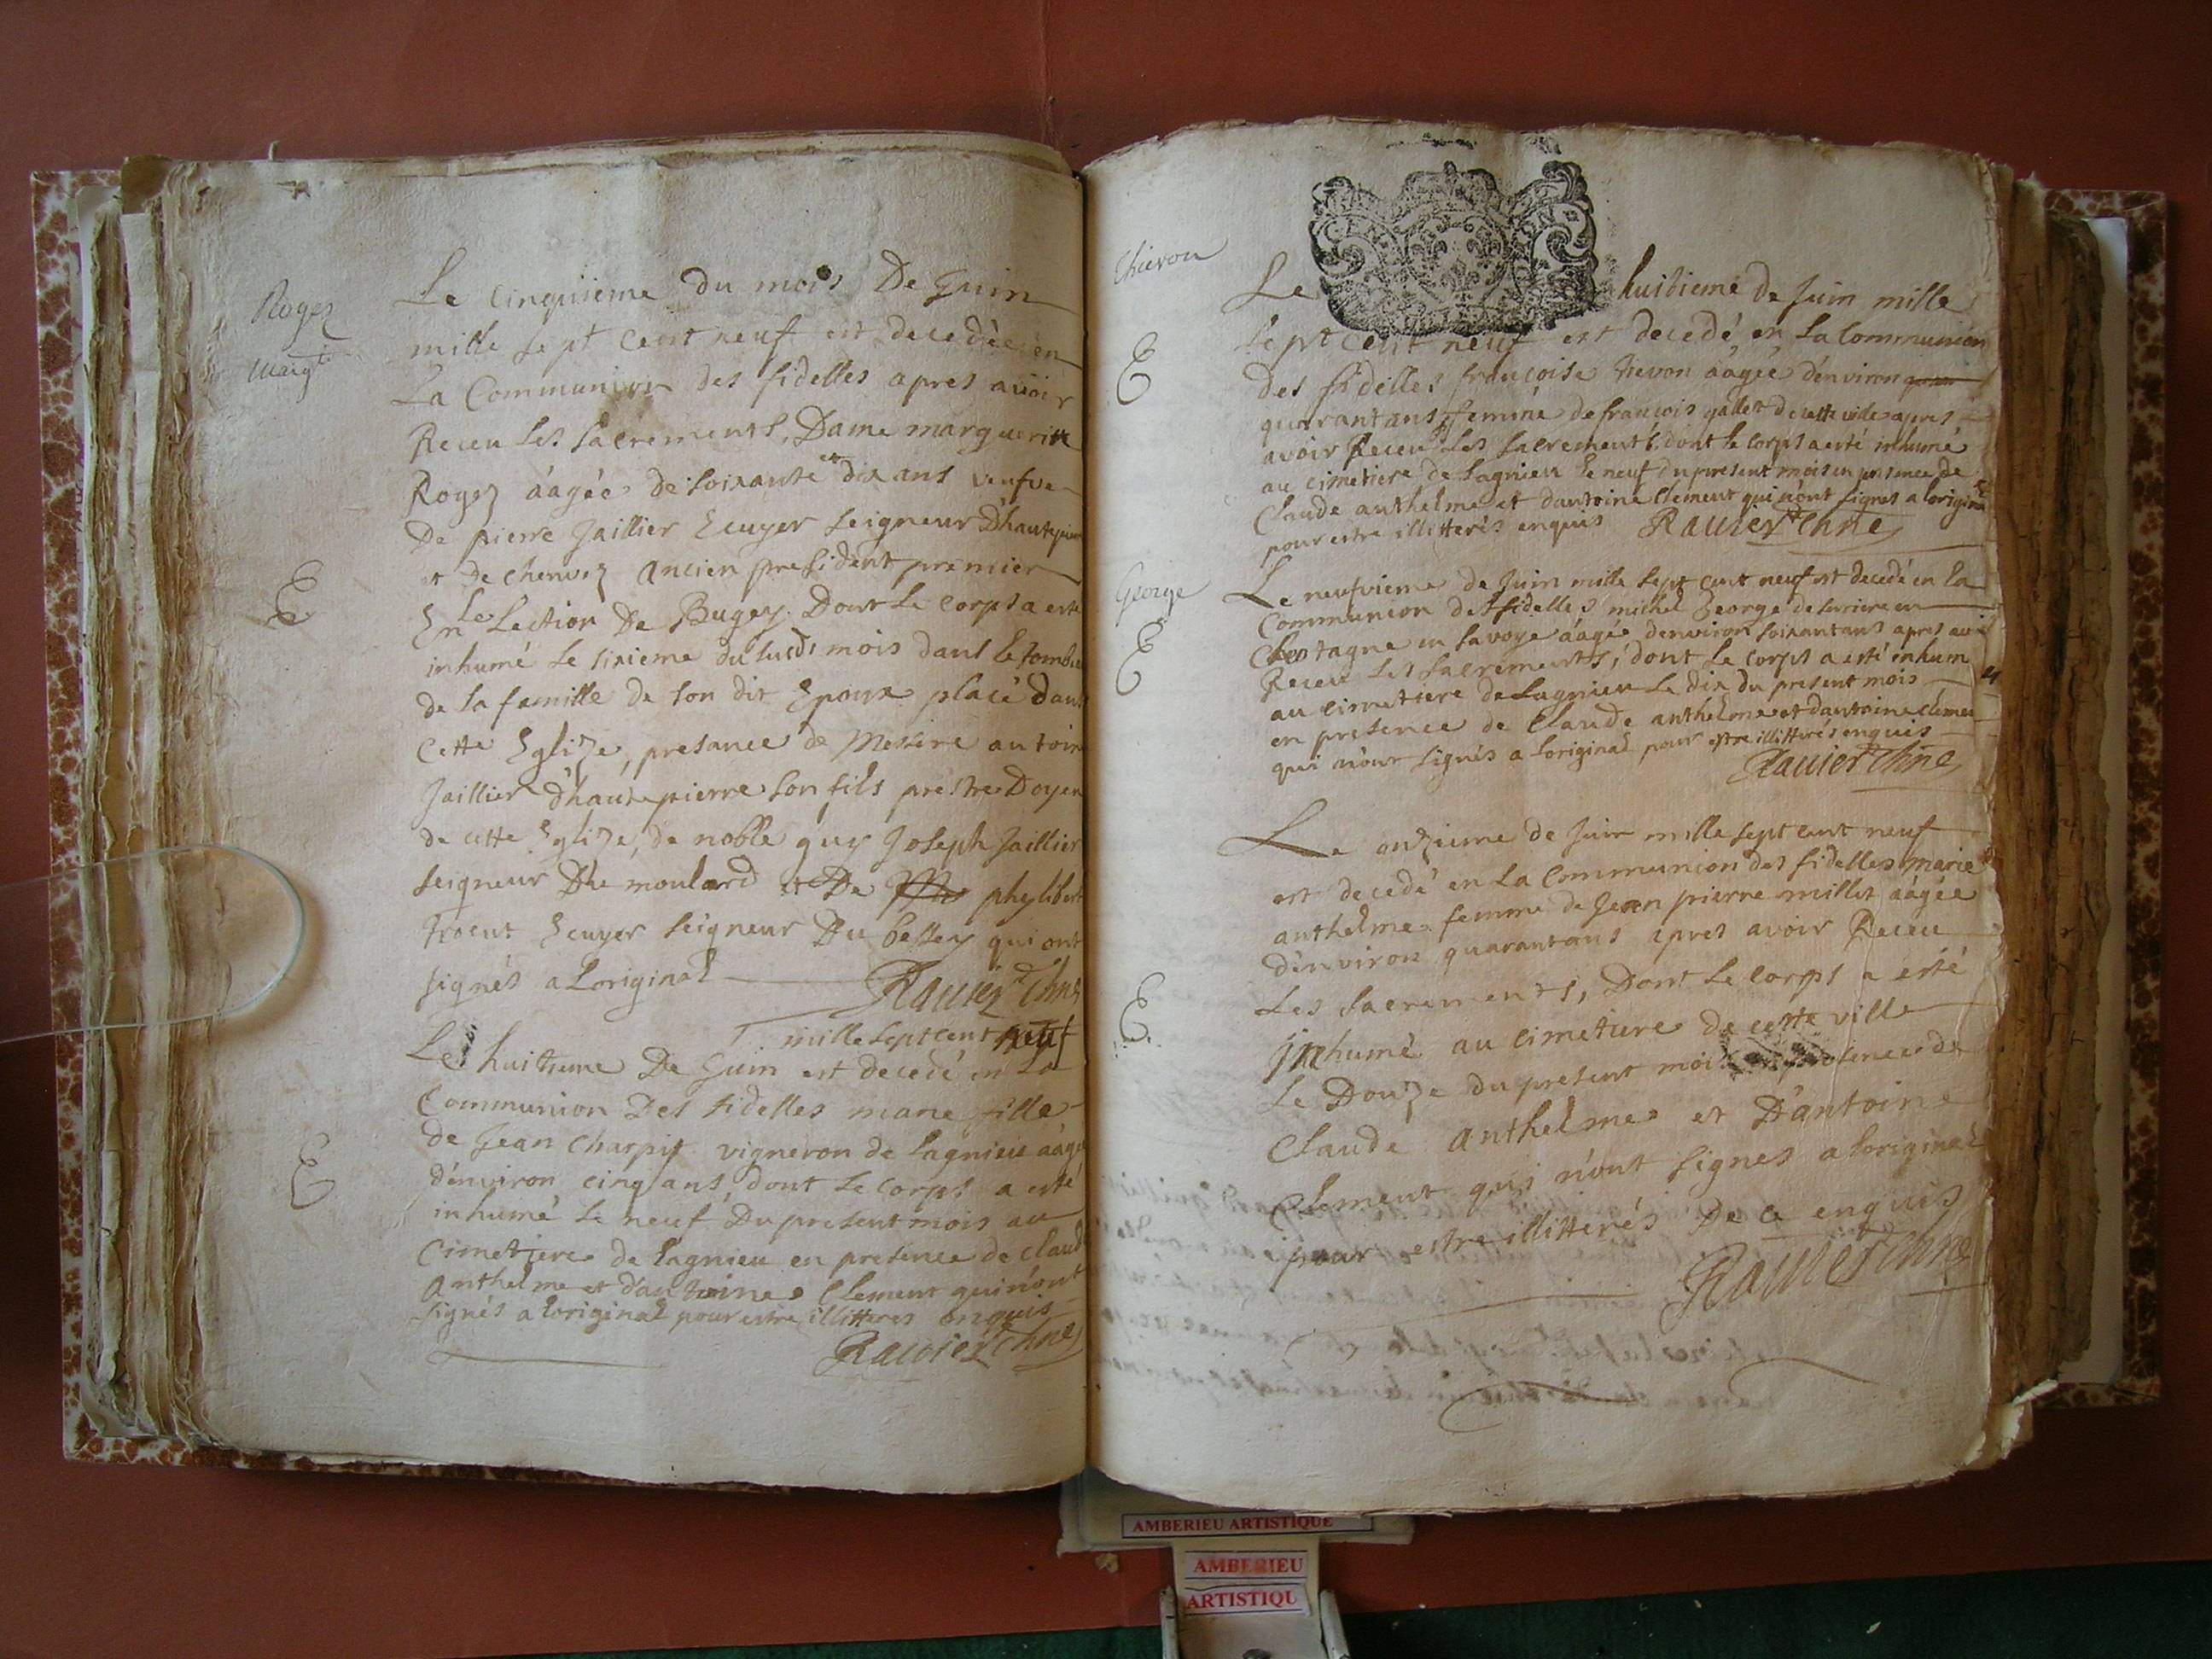 Roger
Marg.te
Le cinquieme du mois De Juin
mille sept cent neuf est decedée en
La Communion des fidelles apres avoir
Receu les sacrements, Dame margueritte
Roger áagée de soixante et dix ans veufve
De pierre Jaillier Ecuyer seigneur D'hautepierre
et de chenvoz ancien president premier
En Le Lection De Bugey. Dont Le corps a esté
inhumé Le sixieme du susdi mois dans Le tombe
de la famille de son dit Epoux placé dans
Cette Eglize, presance de Messire antoin
Jaillier d'hautepierre son fils prestre Doyen
de cette Eglize, de noble guy Joseph Jaillier
seigneur Du moulard et De phylibert
trocut Ecuyer seigneur Du bessey qui ont
signés a Loriginal
Ravier Chne
mille sept cent neuf
Le huitieme De Juin est decedé en La
Communion Des fidelles marie fille
de Jean Charpit vigneron de Lagnieu áagé
d'environ cinq ans, dont Le corps a esté
inhumé Le neuf Du present mois au
Cimetiere de Lagnieu en presence de Claud
Anthelme et d'antoine Clement qui n'ont
signés a Loriginal pour estre illitteres enquis
Ravier Chne
Chievon
Le huitieme de Juin mille
sept cent neuf est decedé en La Communion
Des fidelles françoise tievon áagée d'environ
quarant ans femme de françois gallet de cette ville apres
avoir Receu Les sacrements, dont le corps a esté inhumé
au cimetiere de Lagnieu le neuf du present mois en presence de
Claude anthelme et d'antoine Clement qui n'ont signes a Lorigina
pour estre illitterés enquis Ravier Chne
George
Le neufvieme de Juin mille sept cent neuf est decedé en la
Communion des fidelles michel George de serriere en
Chestagne en savoye áagée denviron soixantans apres avoir
Receu Les sacrements, dont Le corps a esté inhum
au cimetiere de Lagnieu Le dix du present mois
en presence de Claude anthelme et d'antoine clemen
qui n'ont signés a Loriginal pour estre illitterés enquis
Ravier Chne
Le onzieme de Juin mille sept cent neuf
est decedé en La Communion des fidelles marie
anthelme femme de Jean pierre millet áagée
d'environ quarantans apres avoir Receu
Les sacrements, Dont Le corps a esté
inhumé au cimetiere de cette ville
Le Douze du present mois en presence de
Claude Anthelme et D'antoine
Clement qui n'ont signes a Loriginal
pour estre illitterés De ce enquis
Ravier Chne
AMBERIEU ARTISTIQUE
AMBERIEU
ARTISTIQU